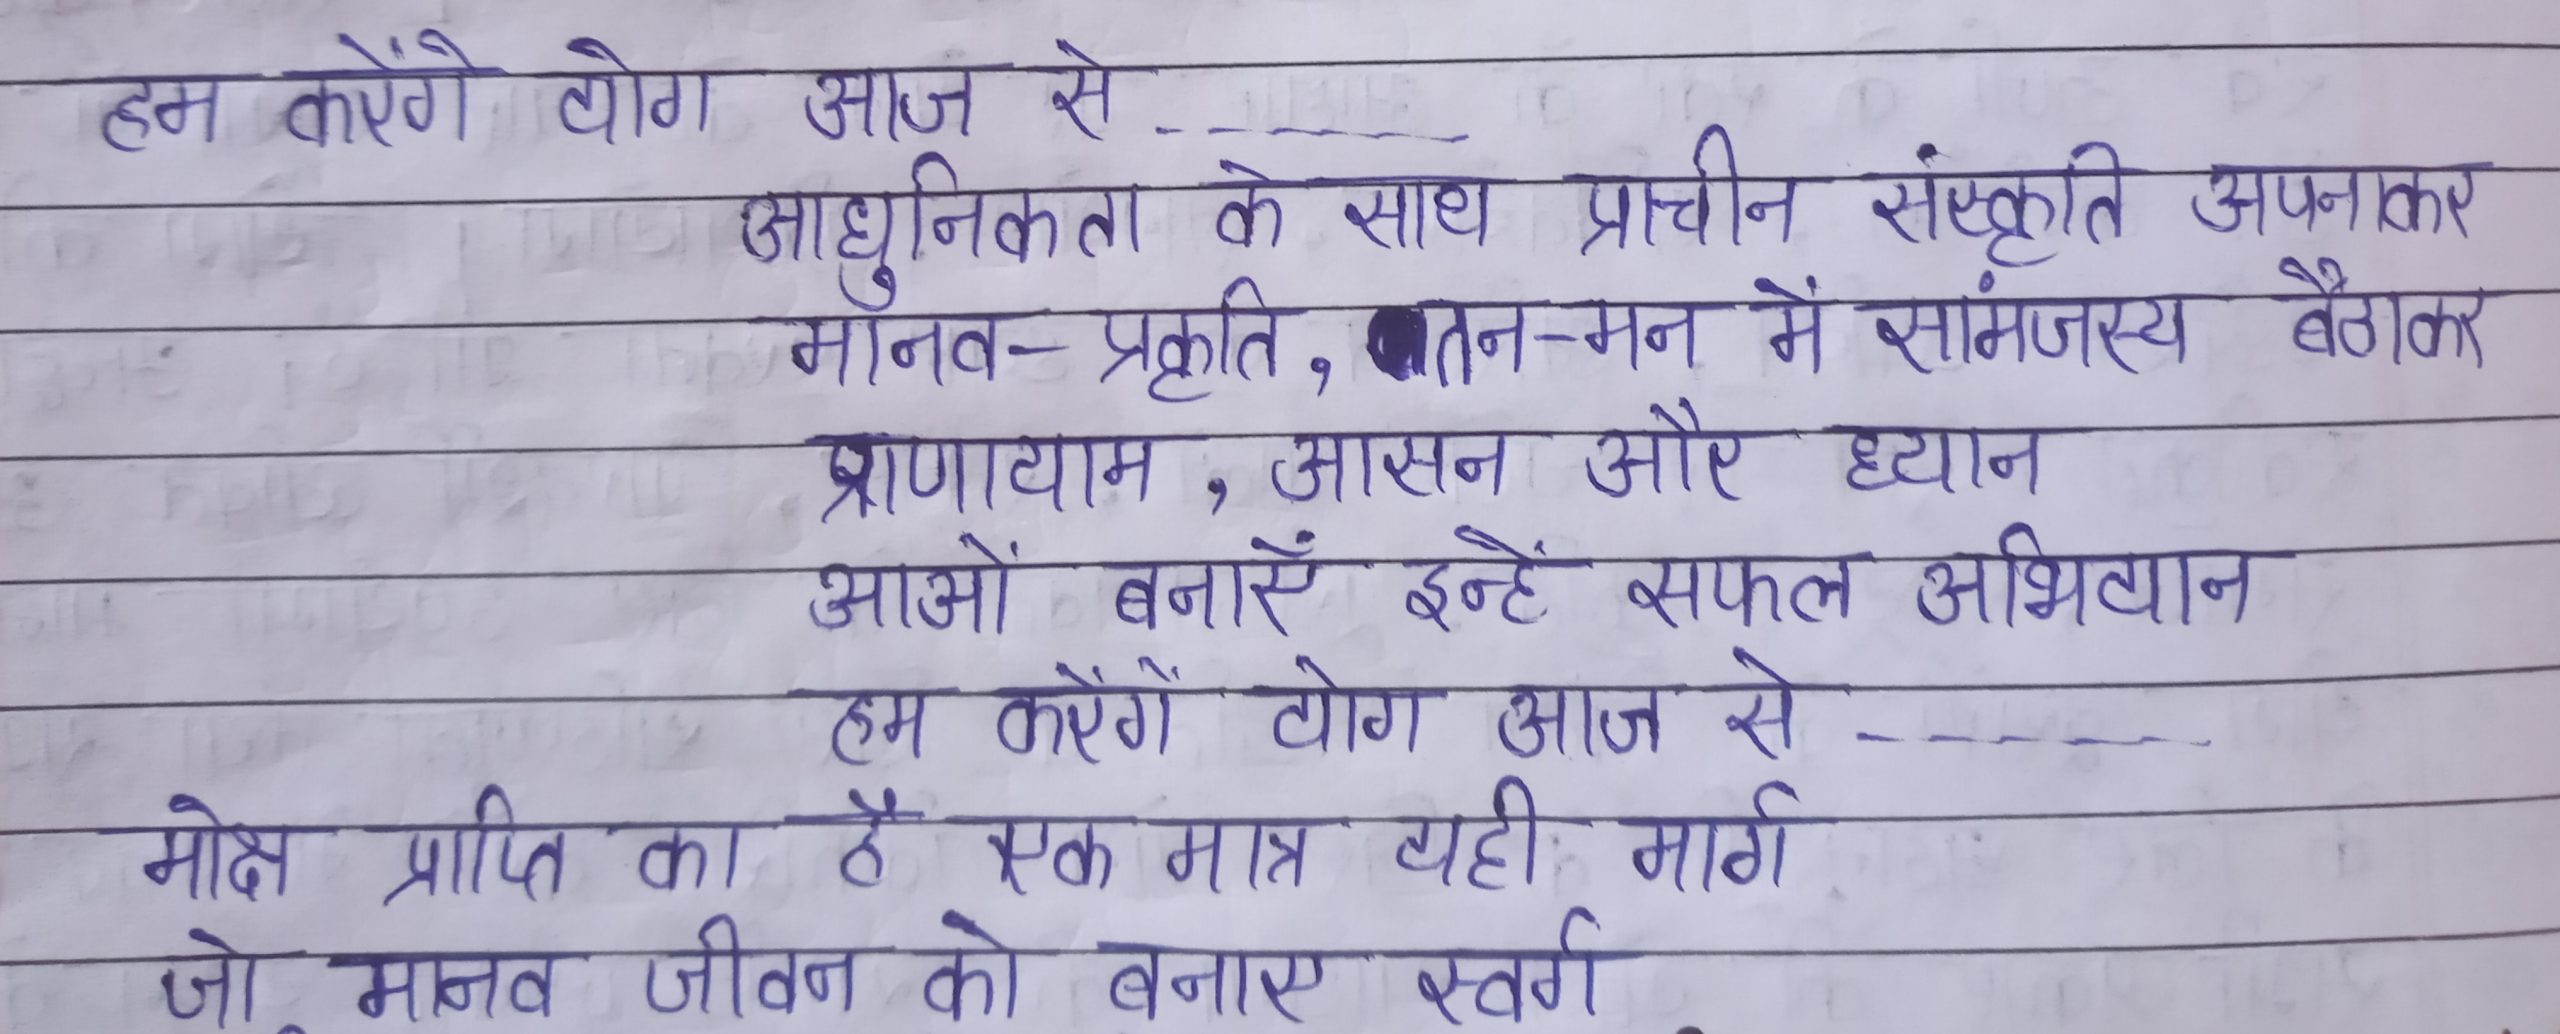 हम करेंगे योग आज से ------
आधुनिकता के साथ प्राचीन संस्कृति अपनाकर
मानव- प्रकृति, तन-मन में सांमजस्य बैठाकर
प्राणायाम, आसन और ध्यान
आओं बनाएँ इन्हें सफल अभियान
हम करेंगें योग आज से ------
मोक्ष प्राप्ति का है एक मात्र यही मार्ग
जो मानव जीवन को बनाए स्वर्ग